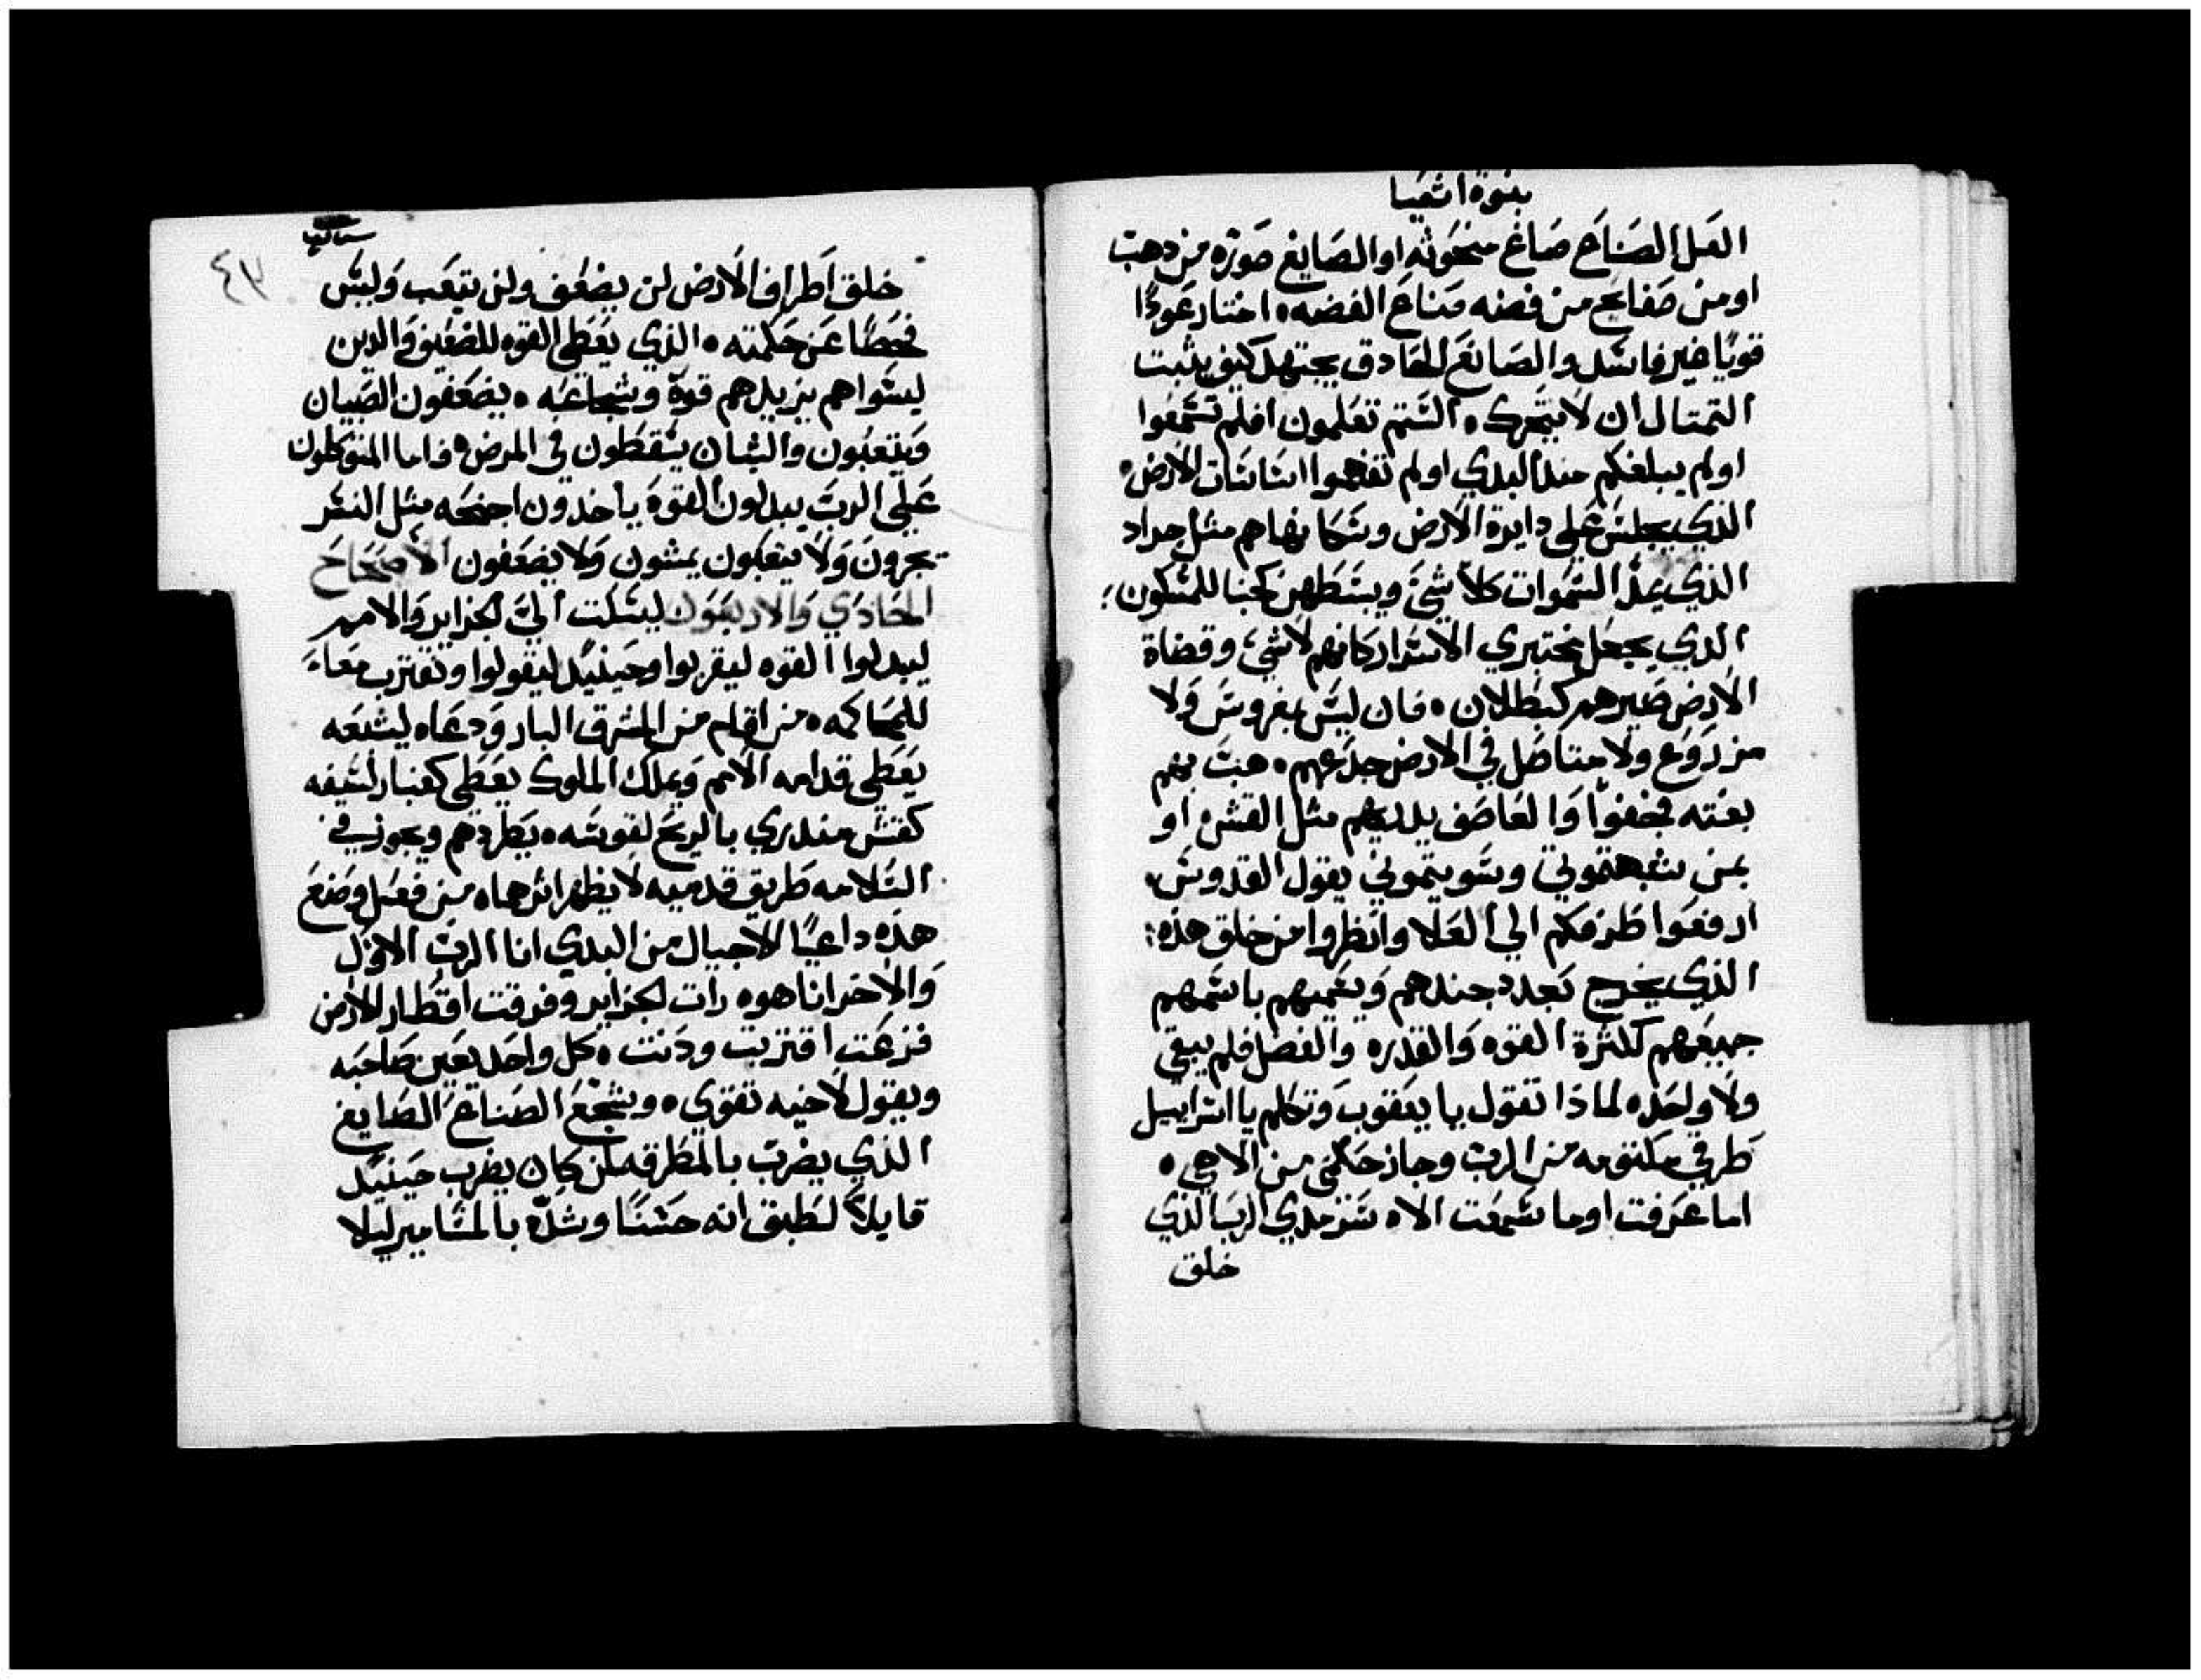 بنوة اشعيا
العل الصناع صاغ منحوته او الصايغ صوره من دهب
او من صفايح من فضه صناع الفضه اختار عودًا
قويًا غير فاسد والصانع الحادق يجتهد كيف يثبت
التمتال ان لا يتحرك الستم تعلمون افلم تسمعوا
اولم يبلغكم مند البدي اولم تفهموا اساسات الارض
الذي يجلس علي دايرة الارض وسكانها هم مثل جراد
الذي يمد السموات كلا شي ويبسطهن كخبا للسكون
الذي يجعل مختبري الاسرار كانهم لا شي وقضاة
الارض صيرهم كبطلان فان ليس بمغروس ولا
مزروع ولا متاصل في الارض جدعهم هبت بهم
بغته فجفوا والعاصف يبديهم مثل القش او
بمن شبهتموني وسويتموني يقول القدوس
ارفعوا طرفكم الي العلا وانظروا من خلق هذه
الذي يخرج بعدد جندهم ويسميهم باسمهم
جميعهم لكثرة القوه والقدره والفضل فلم يبقي
ولا واحده لماذا تقول يا يعقوب وتكلم يا اسراييل
طرقي مكتومه من الرب وجاز حكمي من الاهي
اما عرفت اوما سمعت الاه سرمدي الرب الذي
خلق
٤٣
خلق اطراف الارض لن يضعف ولن يتعب وليس
فحصًا عن حكمته الذي يعطي القوه للضعيف والدين
ليسوا هم يزيدهم قوة وشجاعه يضعفون الصبيان
ويتعبون والشبان يسقطون في المرض فاما المتوكلون
علي الرب يبدلون القوة ياخدون اجنحه مثل النسر
يجرون ولا يتعبون يمشون ولا يضعفون الاصحاح
الحادي والاربعون ليسكت الي الجزاير والامم
ليبدلوا القوه ليقربوا وحينيد ليقولوا ونقترب معا
للمحاكمه من اقام من المشرق البار ودعاه ليتبعه
يعطي قدامه الامم ويملك الملوك يعطي كغبار لسيفه
كقش مندري بالريح لقوسه يطردهم ويجوز في
السلامه طريق قدميه لا يظهر اثرها من فعل وصنع
هذه داعيًا الاجيال من البدي انا الرب الاول
والاخر انا هو رات الجزاير وفرقت اقطار الارض
فزعت اقتربت ودنت كل واحد يعين صاحبه
ويقول لاخيه تقوي وشجع الصناع الصايغ
الذي يضرب بالمطرقه من كان يضرب حينيد
قايلا لطبق انه حسنًا وشده بالمسامير ليلا